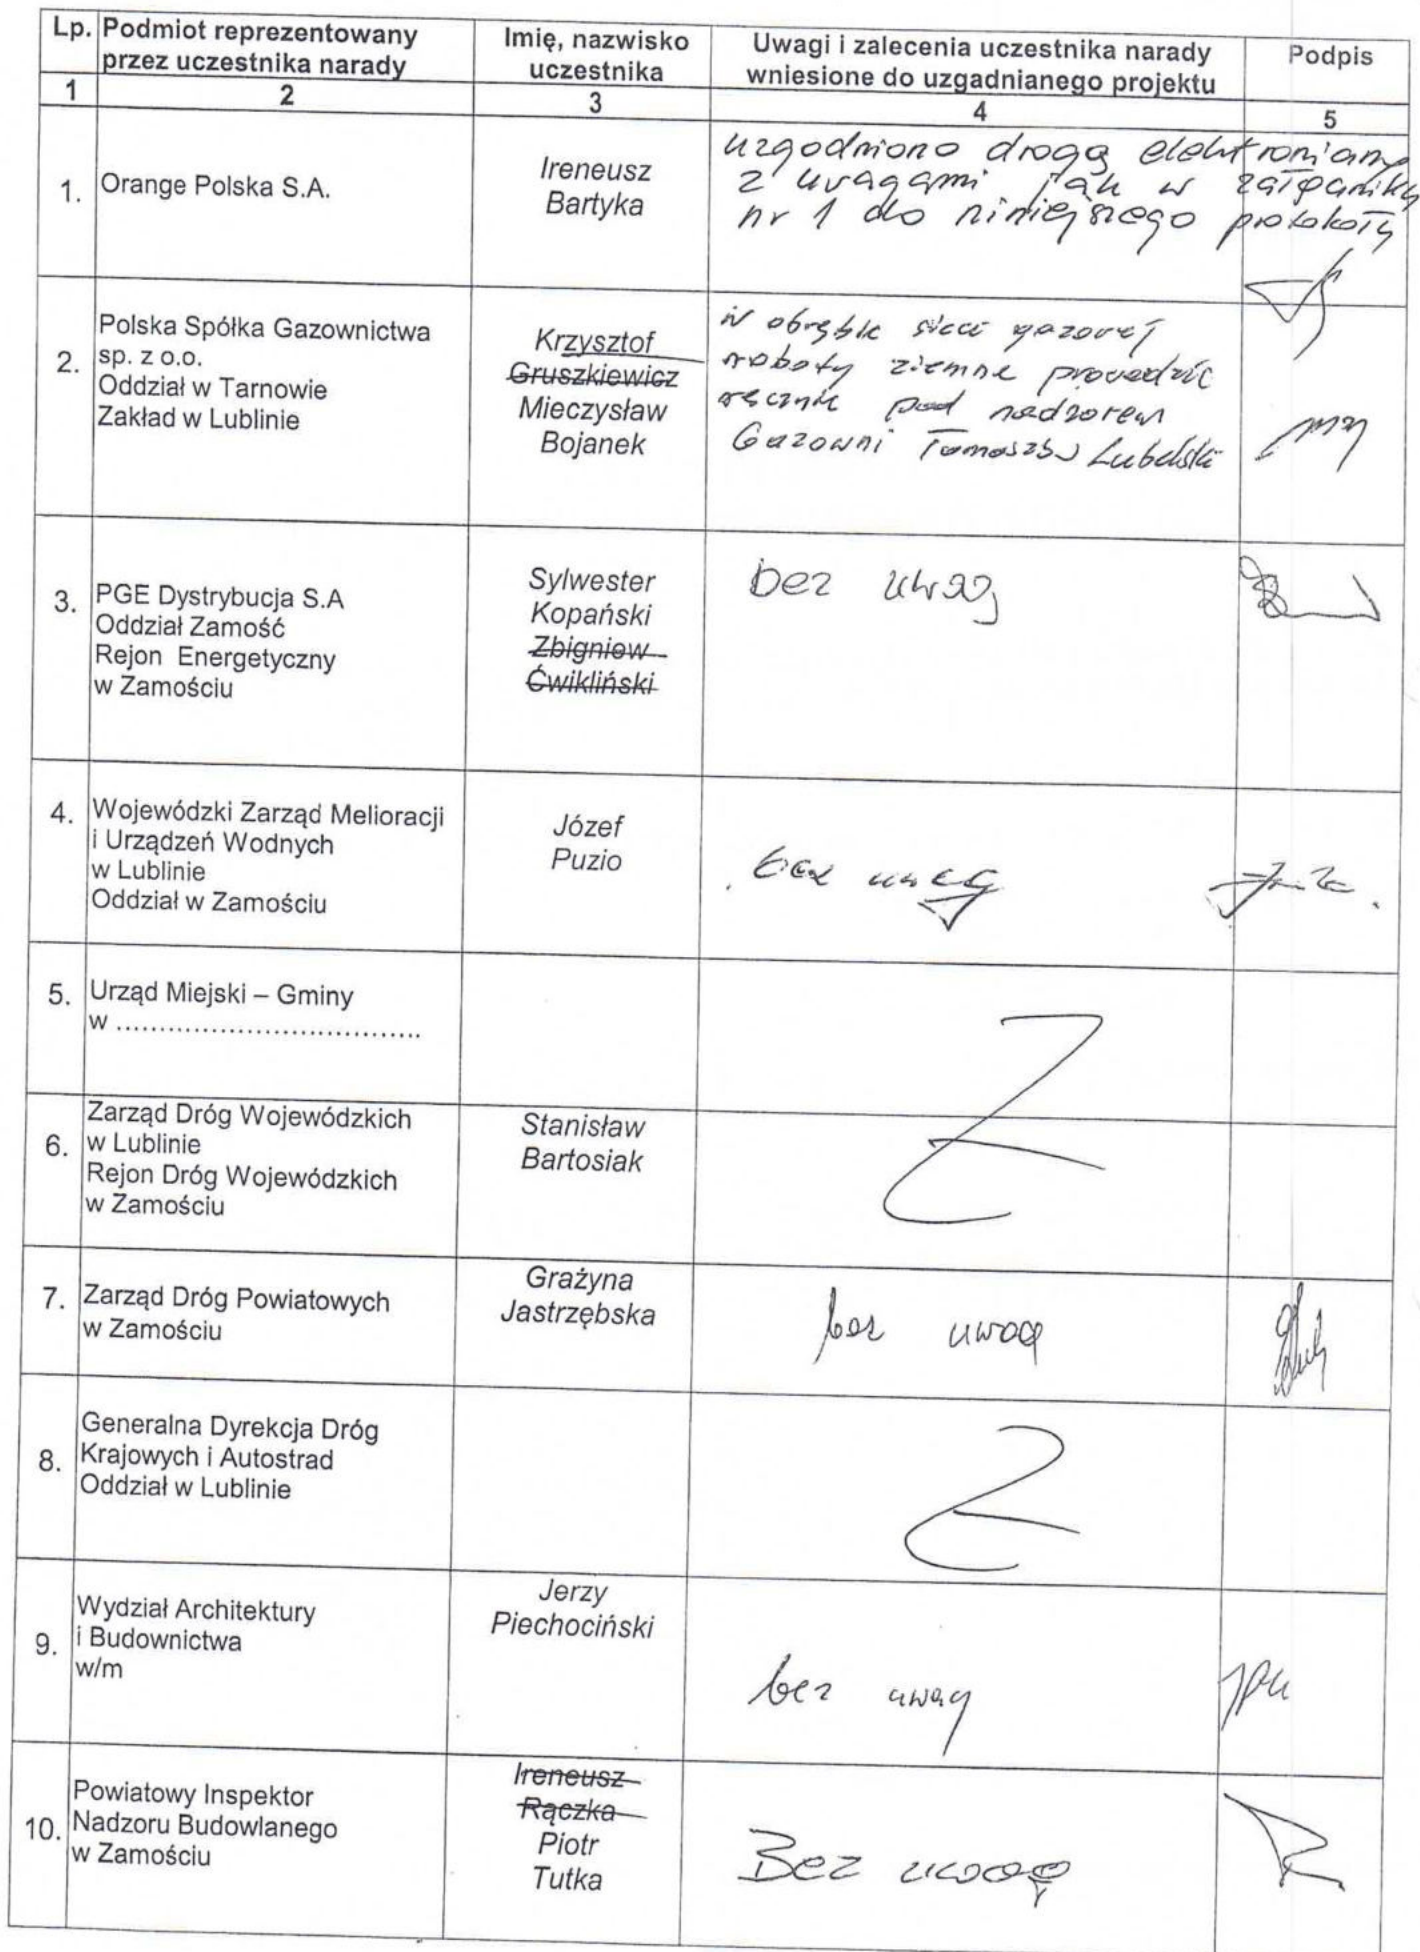 Lp. Podmiot reprezentowany przez uczestnika narady
Imię, nazwisko uczestnika
Uwagi i zalecenia uczestnika narady wniesione do uzgadnianego projektu
Podpis
1 2 3 4 5
1. Orange Polska S.A.
Ireneusz
Bartyka
uzgodniono drogą elektroniczną
z uwagami jak w załączniku
nr 1 do niniejszego protokołu
2. Polska Spółka Gazownictwa
sp. z o.o.
Oddział w Tarnowie
Zakład w Lublinie
Krzysztof
Gruszkiewicz
Mieczysław
Bojanek
w obrębie sieci gazowej
roboty ziemne prowadzić
ręcznie pod nadzorem
Gazowni Tomaszów Lubelski
3. PGE Dystrybucja S.A
Oddział Zamość
Rejon Energetyczny
w Zamościu
Sylwester
Kopański
Zbigniew
Ćwikliński
bez uwag
4. Wojewódzki Zarząd Melioracji
i Urządzeń Wodnych
w Lublinie
Oddział w Zamościu
Józef
Puzio
bez uwag
5. Urząd Miejski – Gminy
w ...................................
6. Zarząd Dróg Wojewódzkich
w Lublinie
Rejon Dróg Wojewódzkich
w Zamościu
Stanisław
Bartosiak
7. Zarząd Dróg Powiatowych
w Zamościu
Grażyna
Jastrzębska
bez uwag
8. Generalna Dyrekcja Dróg
Krajowych i Autostrad
Oddział w Lublinie
9. Wydział Architektury
i Budownictwa
w/m
Jerzy
Piechociński
bez uwag
10. Powiatowy Inspektor
Nadzoru Budowlanego
w Zamościu
Ireneusz
Rączka
Piotr
Tutka
Bez uwag